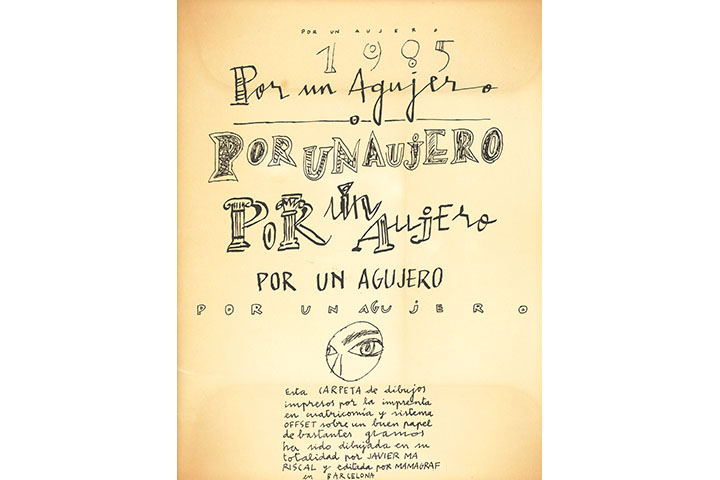 POR UN AUJERO
1985
Por un Agujero
PORUNAUJERO
POR UN AUJERO
POR UN AGUJERO
POR UN AGUJERO
Esta CARPETA de dibujos
impresos por la imprenta
en cuatricomia y sistema
OFFSET sobre un buen papel
de bastantes gramos
ha sido dibujada en su
totalidad por JAVIER MA
RISCAL y editada por MAMAGRAF
en BARCELONA